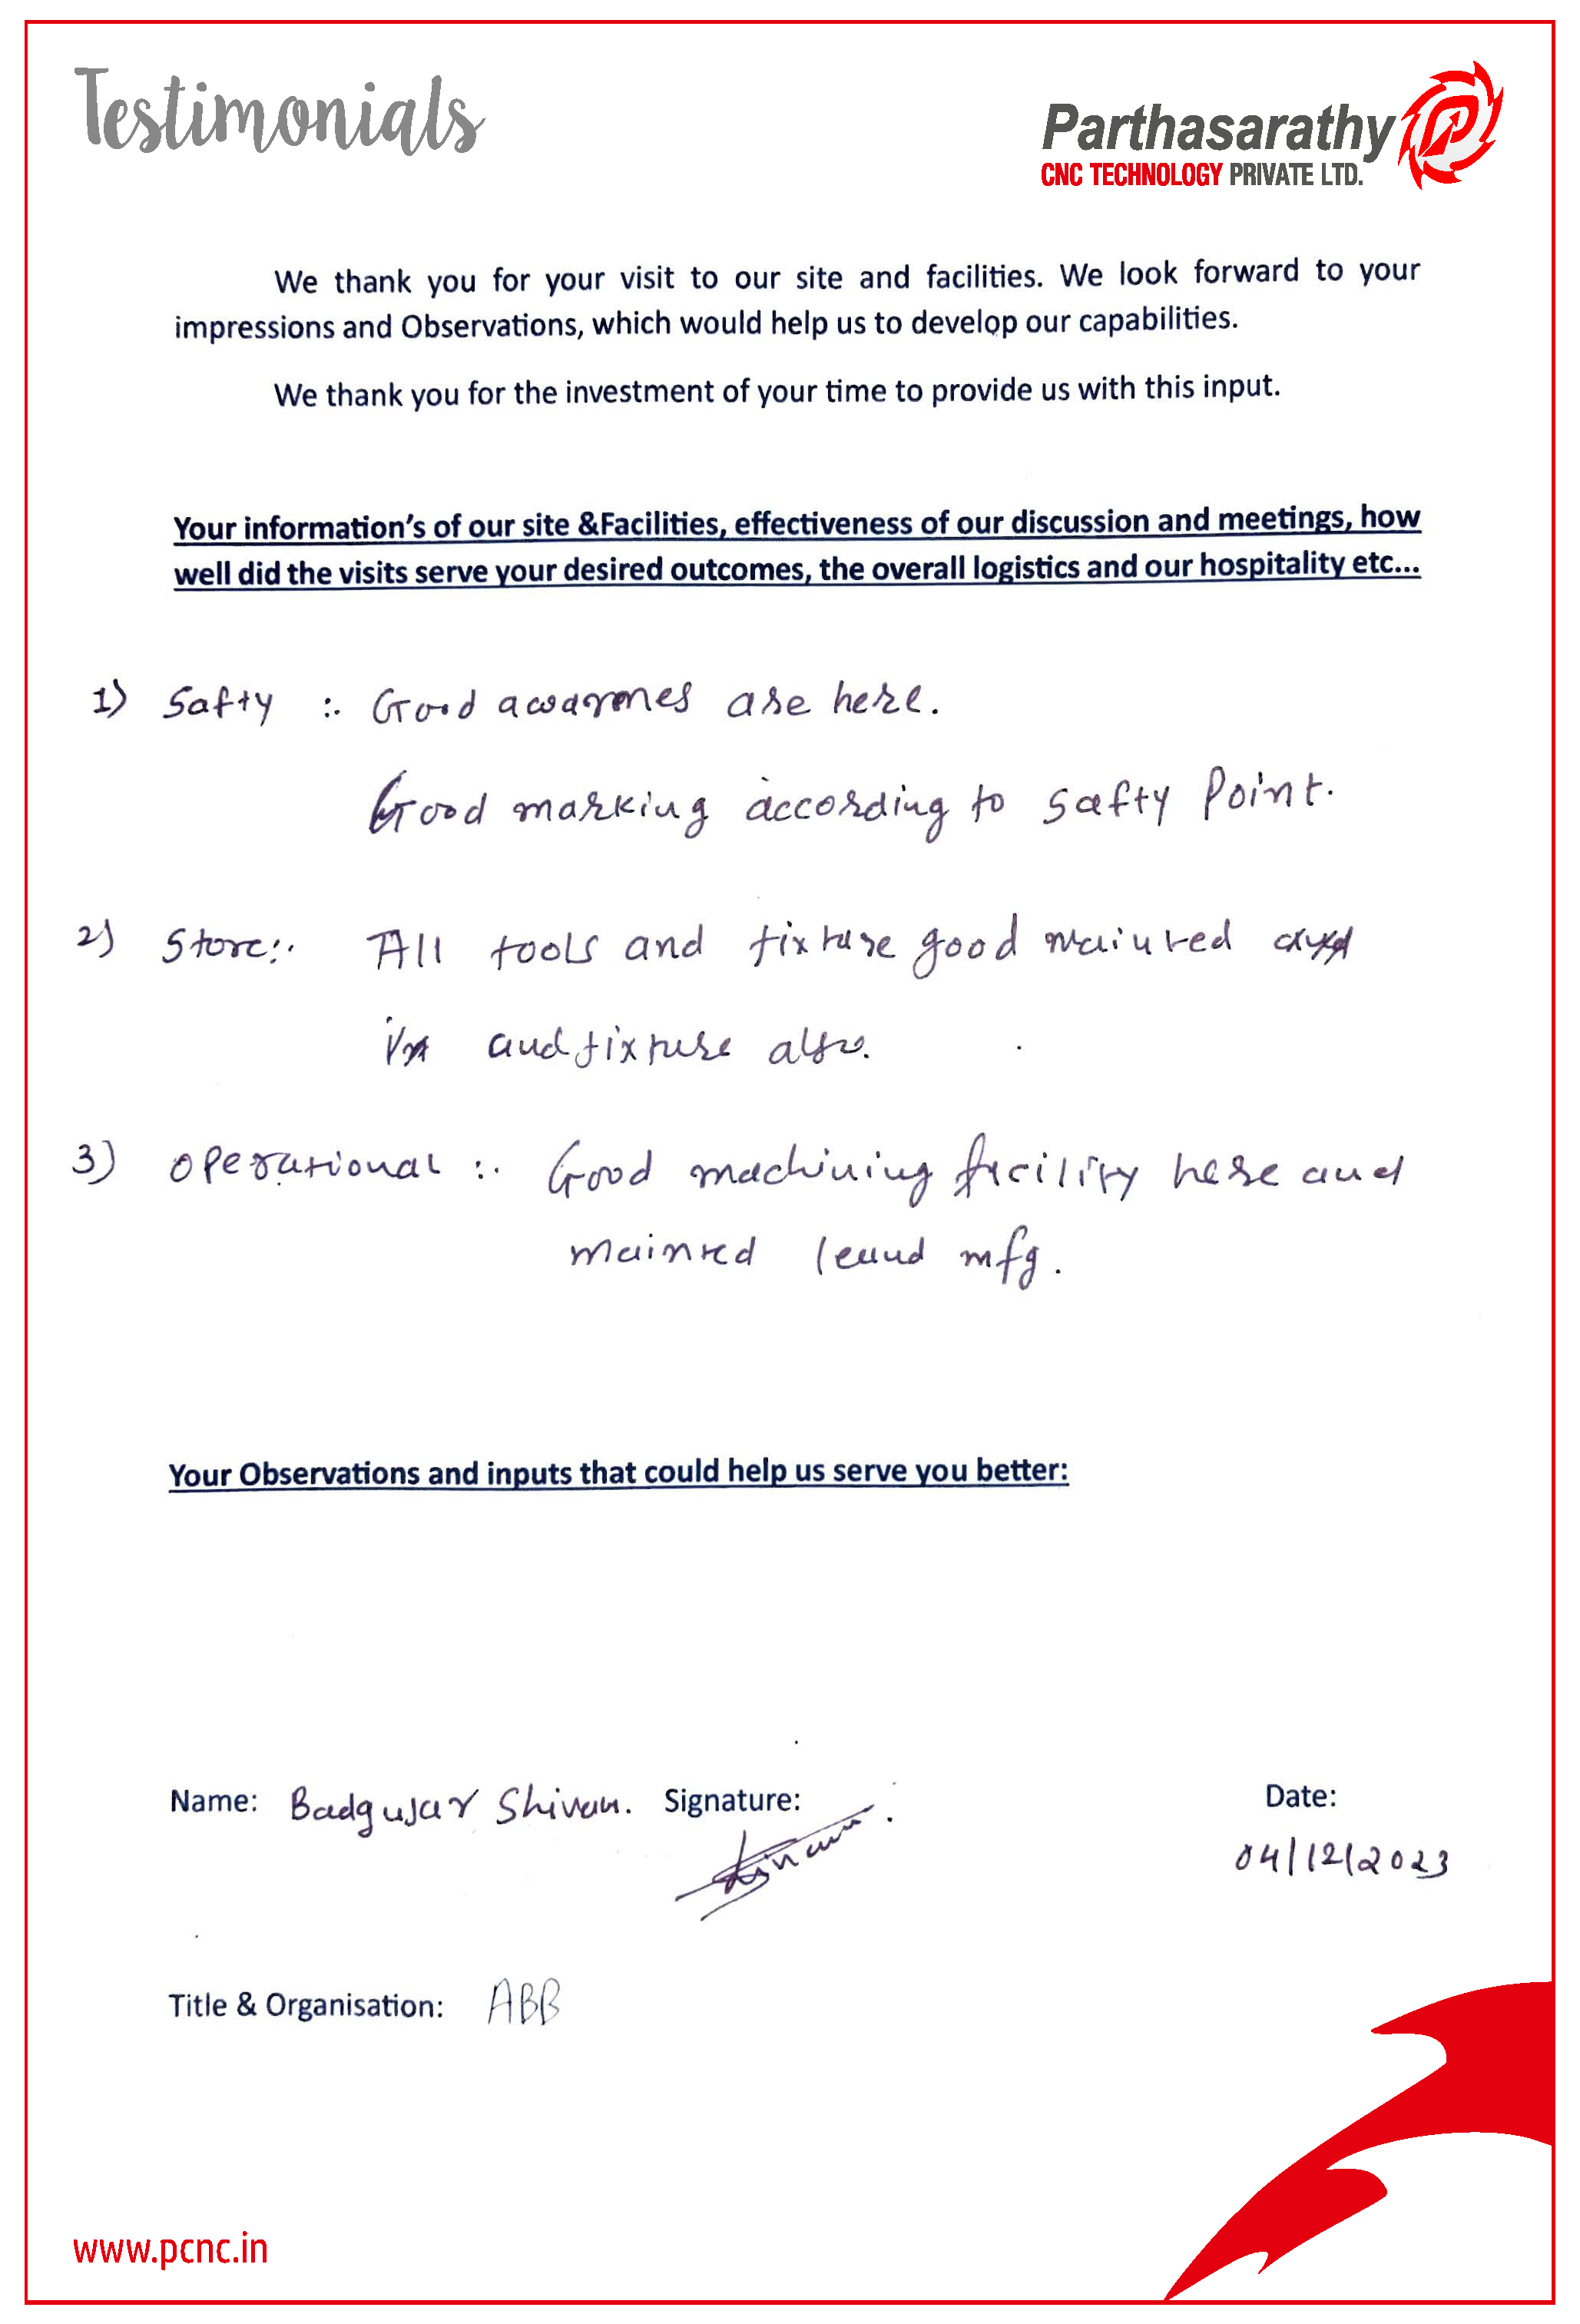 Testimonials
Parthasarathy
CNC TECHNOLOGY PRIVATE LTD.
We thank you for your visit to our site and facilities. We look forward to your
impressions and Observations, which would help us to develop our capabilities.
We thank you for the investment of your time to provide us with this input.
Your information's of our site &Facilities, effectiveness of our discussion and meetings, how
well did the visits serve your desired outcomes, the overall logistics and our hospitality etc...
1) Safty :. Good awarnes are here.
Good marking according to safty Point.
2) Store:. All tools and fixture good mainted
and fixture also.
3) Operational :. Good machining facility here and
mainted mfg.
Your Observations and inputs that could help us serve you better:
Name: Badgujar Shivam. Signature:
Date:
04/12/2023
Title & Organisation: ABB
www.pcnc.in